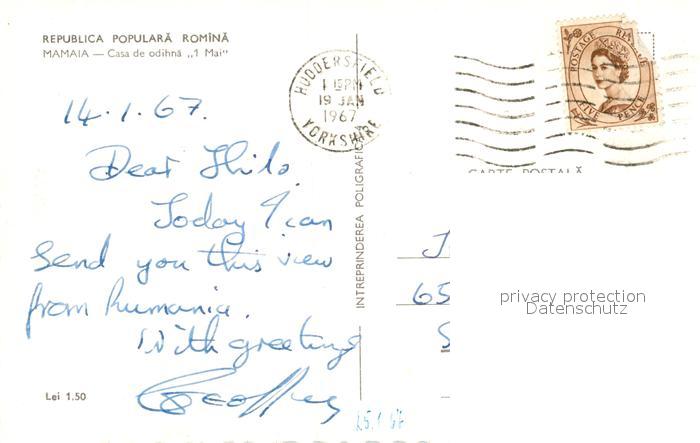 REPUBLICA POPULARĂ ROMÎNĂ
MAMAIA — Casa de odihnă „1 Mai"
HUDDERSFIELD
1 15PM
19 JAN
1967
YORKSHIRE
POSTAGE
FIVE PENCE
14.1.67.
Dear Thilo.
Today I can
send you this view
from Rumania.
With greetings
Geoffrey
Lei 1.50
INTREPRINDEREA POLIGRAFIC
CARTE POSTALĂ
J
65
S
privacy protection
Datenschutz
25.1.67